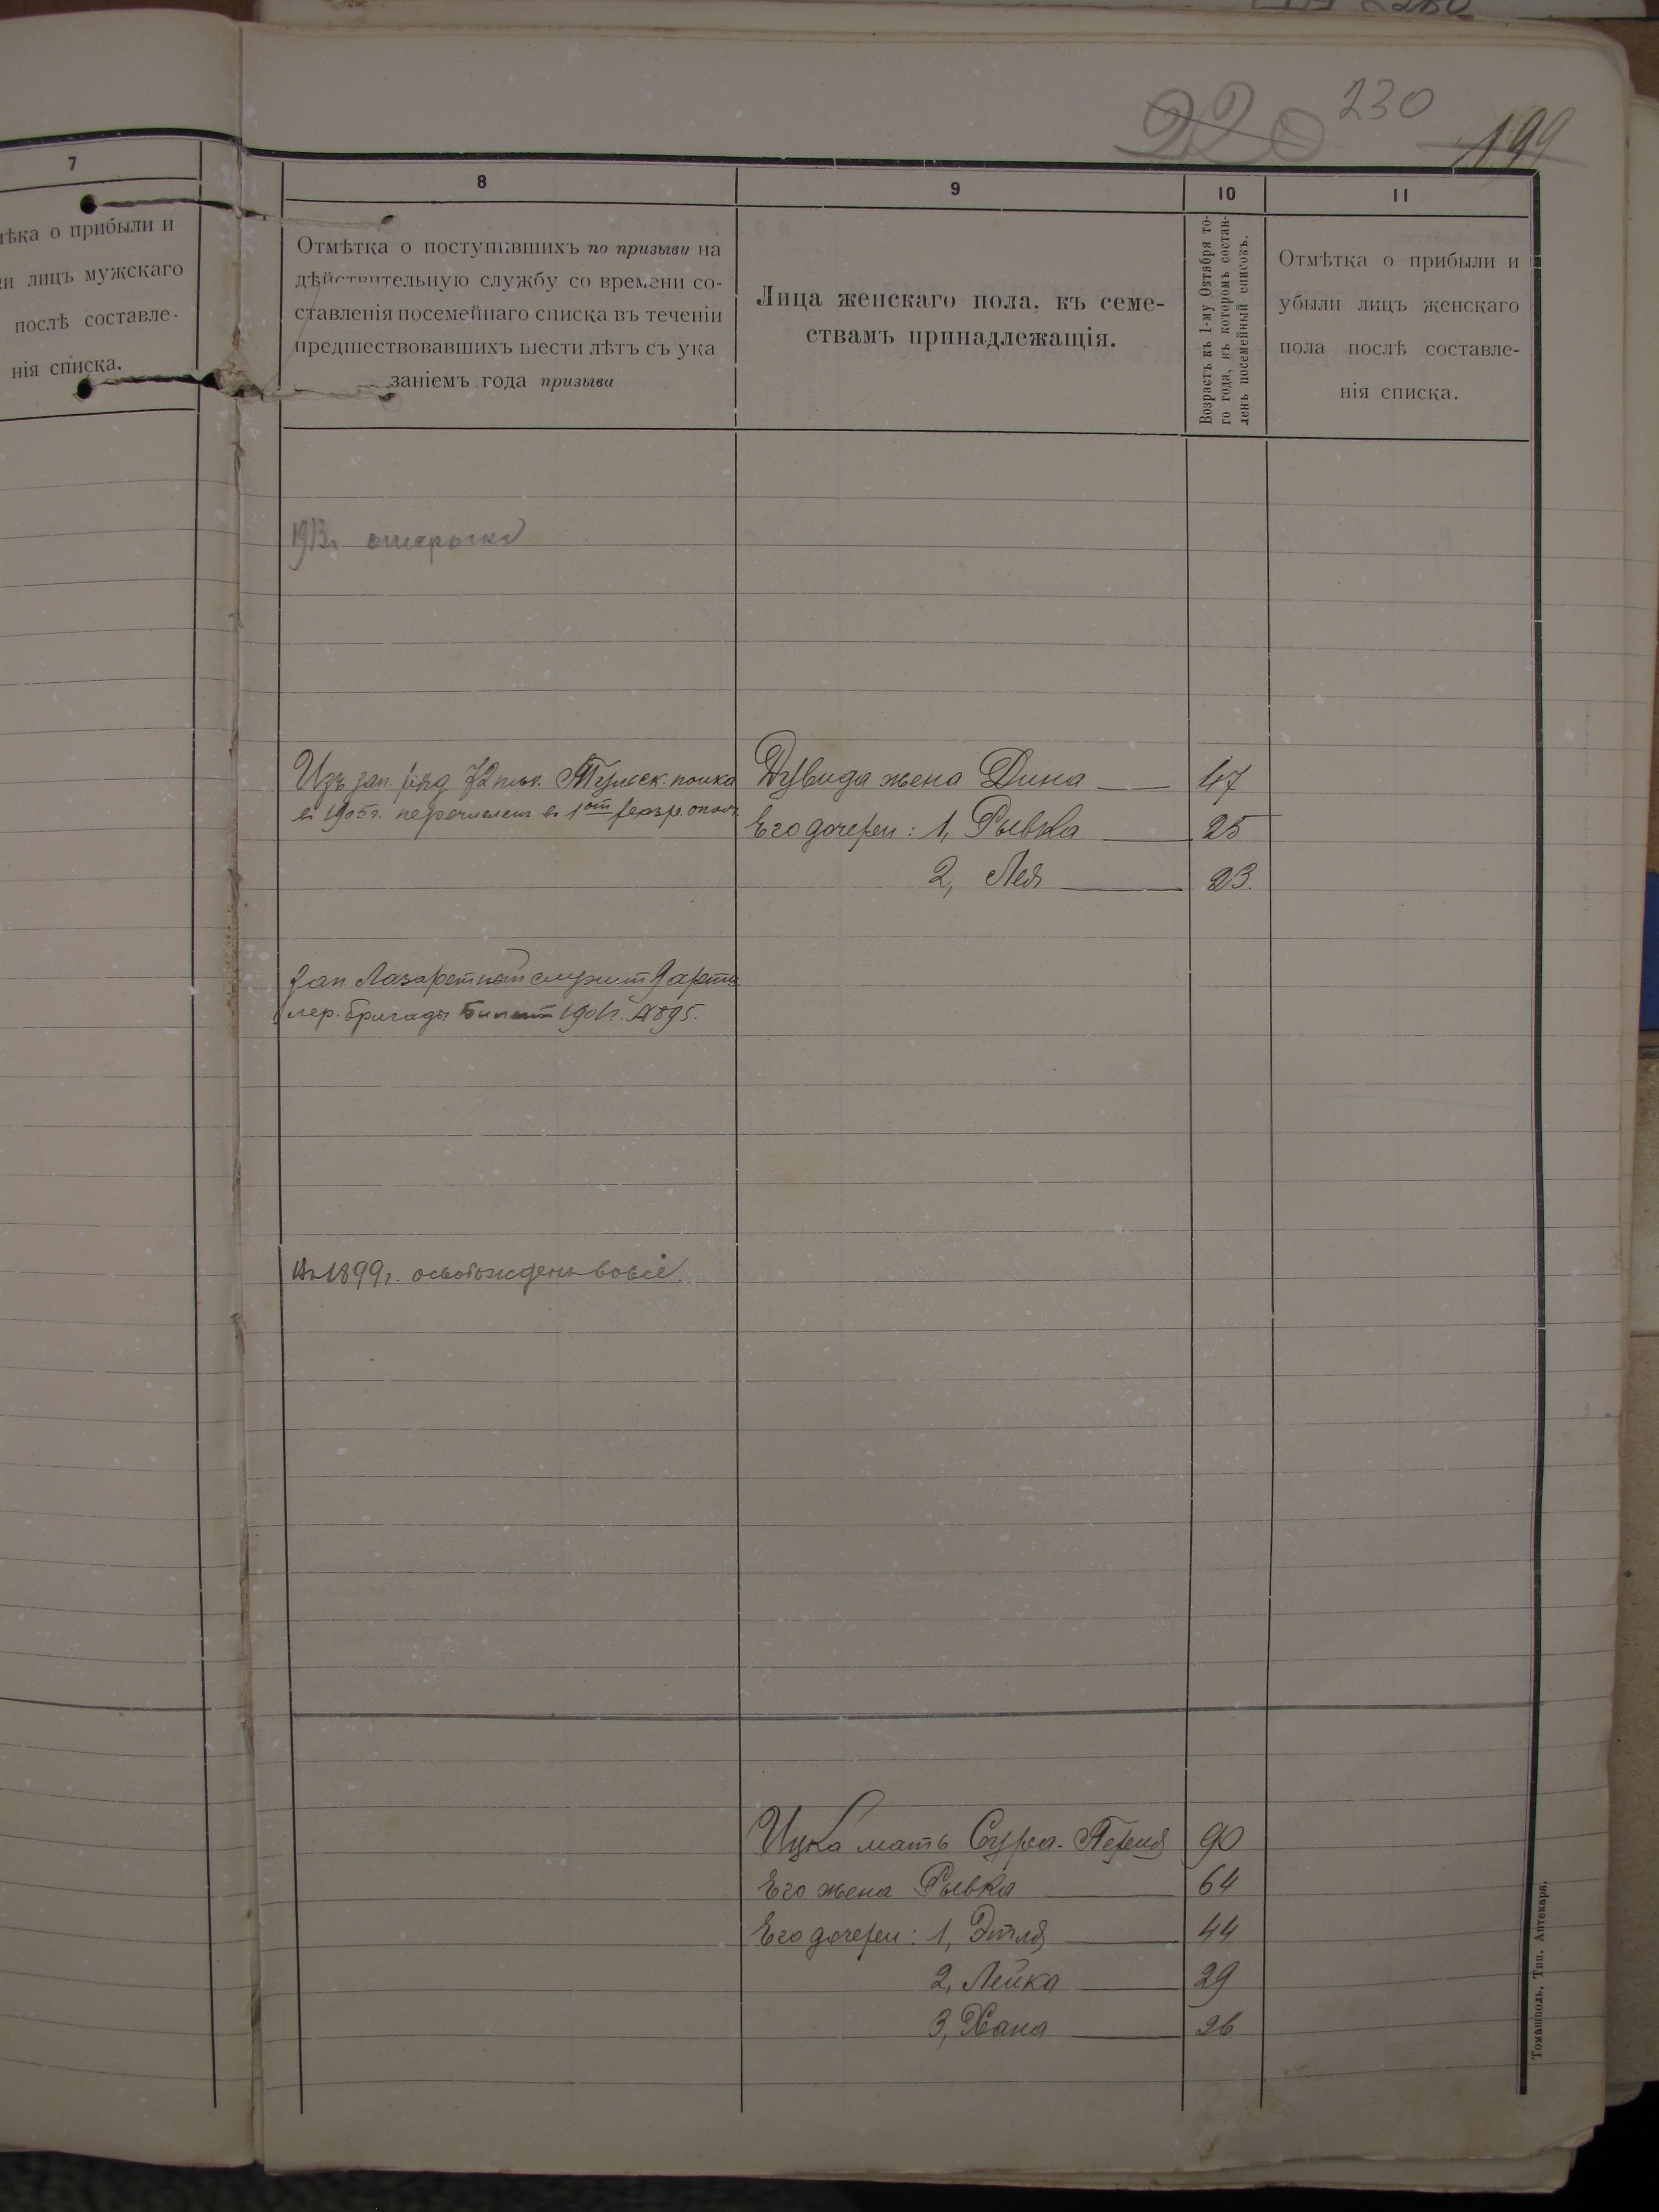 220 230
199
7
8
9
10
11
ѣка о прибыли и
и лицъ мужскаго
послѣ составле-
нія списка.
Отмѣтка о поступившихъ по призыви на
дѣйствительную службу со времени со-
ставленія посемейнаго списка въ теченіи
предшествовавшихъ шести лѣтъ съ ука
заніемъ года призыва
Лица женскаго пола, къ семе-
ствамъ принадлежащія.
Возрастъ къ 1-му Октября то-
го года, къ которомъ состав-
ленъ посемейный списокъ.
Отмѣтка о прибыли и
убыли лицъ женскаго
пола послѣ составле-
нія списка.
1913г.
Изъ зап. ряд 72 пѣх. Тульск. полка
въ 1905г. перечислен в 1
Дувида жена Дина 47
Его дочери: 1, Рывка 25
2, Лея 23.
Зап. Лазаретный служит 9 арти
лер. бригады Билет 1901г. №895.
Въ 1899г. освобожденъ вовсе.
Ицка мать Сура-Перля 90
Его жена Рывка 64
Его дочери: 1, Этля 44
2, Лейка 29
3, Хана 26
Томашполь, Тип. Аптекаря.